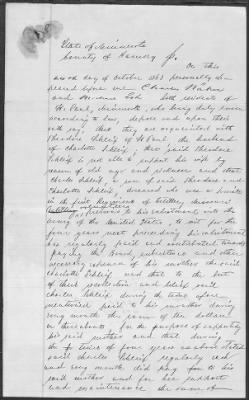 State of Minnesota
County of Ramsey } ss.
On this
second day of October 1863 personally ap-
peared before me Charles
and both residents of
St. Paul, Minnesota, who being duly sworn
according to law, depose and say upon
their oath, that they are acquainted with
Theodore Schleif of St Paul the husband
of Charlotte Schleif, that said Theodore
Schleif is not able to support his wife by
reason of old age and sickness and that
Charles Schleif, a son of said Theodore and
Charlotte Schleif, deceased who was a private
in the first Regiment of Artillery, Missouri
Volunteers
previous to his enlistment into the
army of the United States, to wit for the
four years next preceding his enlistment
has regularly paid and contributed towards
paying the Rent, subsistence and other
necessary expenses of his mother the said
Charlotte Schleif and that to the best
of their knowledge and belief said
Charles Schleif during the time afore
mentioned paid to his mother during
every month the sum of ten dollars
for the purpose of supporting
his said mother and that during
the time of four years as above stated
said Charles Schleif regularly each
and every month did pay for to his
said mother and for her support
and maintenance the sum of